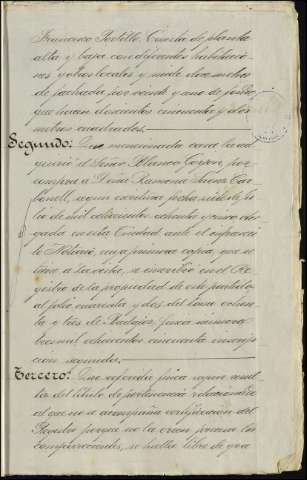 Francisco Portillo. Consta de planta
alta y baja con diferentes habitacio-
nes y otros locales y mide doce metros
de fachada por veinte y uno de fondo,
que hacen doscientos cincuenta y dos
metros cuadrados.
Segundo: Que mencionada casa la ad-
quirió el Señor Blanco por
compra a Doña Ramona
según escritura fecha siete de
de mil ochocientos ochenta y otor-
gada en esta Ciudad ante el infrascri-
to Notario, cuya primera copia, que se
tiene a la vista, se inscribió en el Re-
gistro de la propiedad de este partido
al folio cuarenta y dos del tomo ochen-
ta y tres de Badajoz, finca número
tres mil ochocientos cincuenta inscrip-
ción segunda.
Tercero: Que referida finca según resul-
ta del título de pertenencia relacionado
al que no se acompaña certificación del
Registro porque no la creen precisa los
comparecientes, se halla libre de gra-